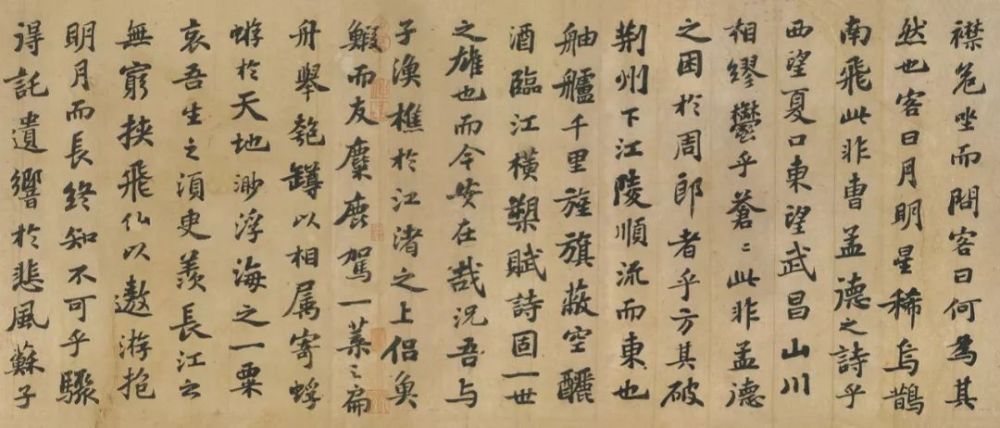 襟危坐而問客曰何為其
然也客曰月明星稀烏鵲
南飛此非曹孟德之詩乎
西望夏口東望武昌山川
相繆鬱乎蒼〻此非孟德
之困於周郎者乎方其破
荆州下江陵順流而東也
舳艫千里旌旗蔽空釃
酒臨江橫槊賦詩固一世
之雄也而今安在哉況吾与
子漁樵於江渚之上侶魚
鰕而友麋鹿駕一葉之扁
舟舉匏罇以相属寄蜉
蝣於天地渺浮海之一粟
哀吾生之須臾羨長江之
無窮挾飛仙以遨游抱
明月而長終知不可乎驟
得託遺響於悲風蘇子